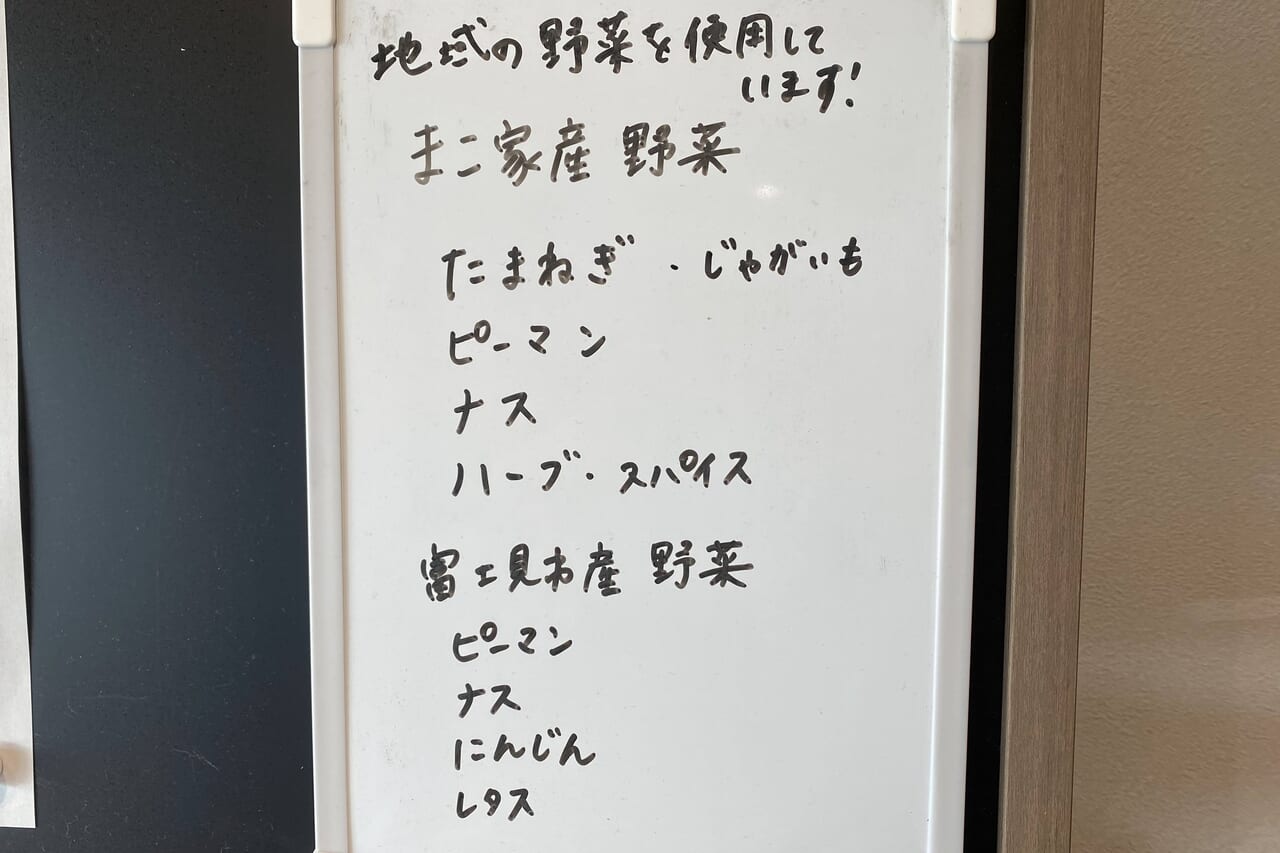 地域の野菜を使用して
います!
まこ家産 野菜
たまねぎ ・じゃがいも
ピーマン
ナス
ハーブ・スパイス
富士見市産 野菜
ピーマン
ナス
にんじん
レタス